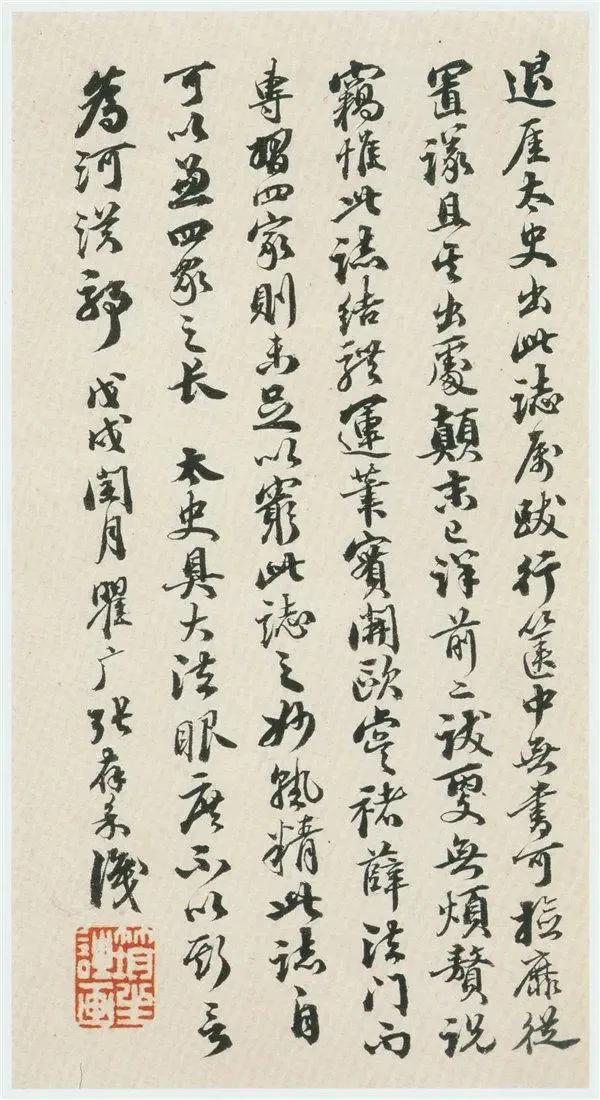 退厓太史出此誌属跋行箧中無書可撿靡從
置議且其出處顛末已詳前二跋更無煩贅説
竊惟此誌結體運筆實開歐虞褚薛法门而
專習四家則未足以窮此誌之妙孰精此誌自
可以兼四家之长 太史具大法眼庶不以斯言
為河漢耶 戊戌閏月瞿广张荐粢識